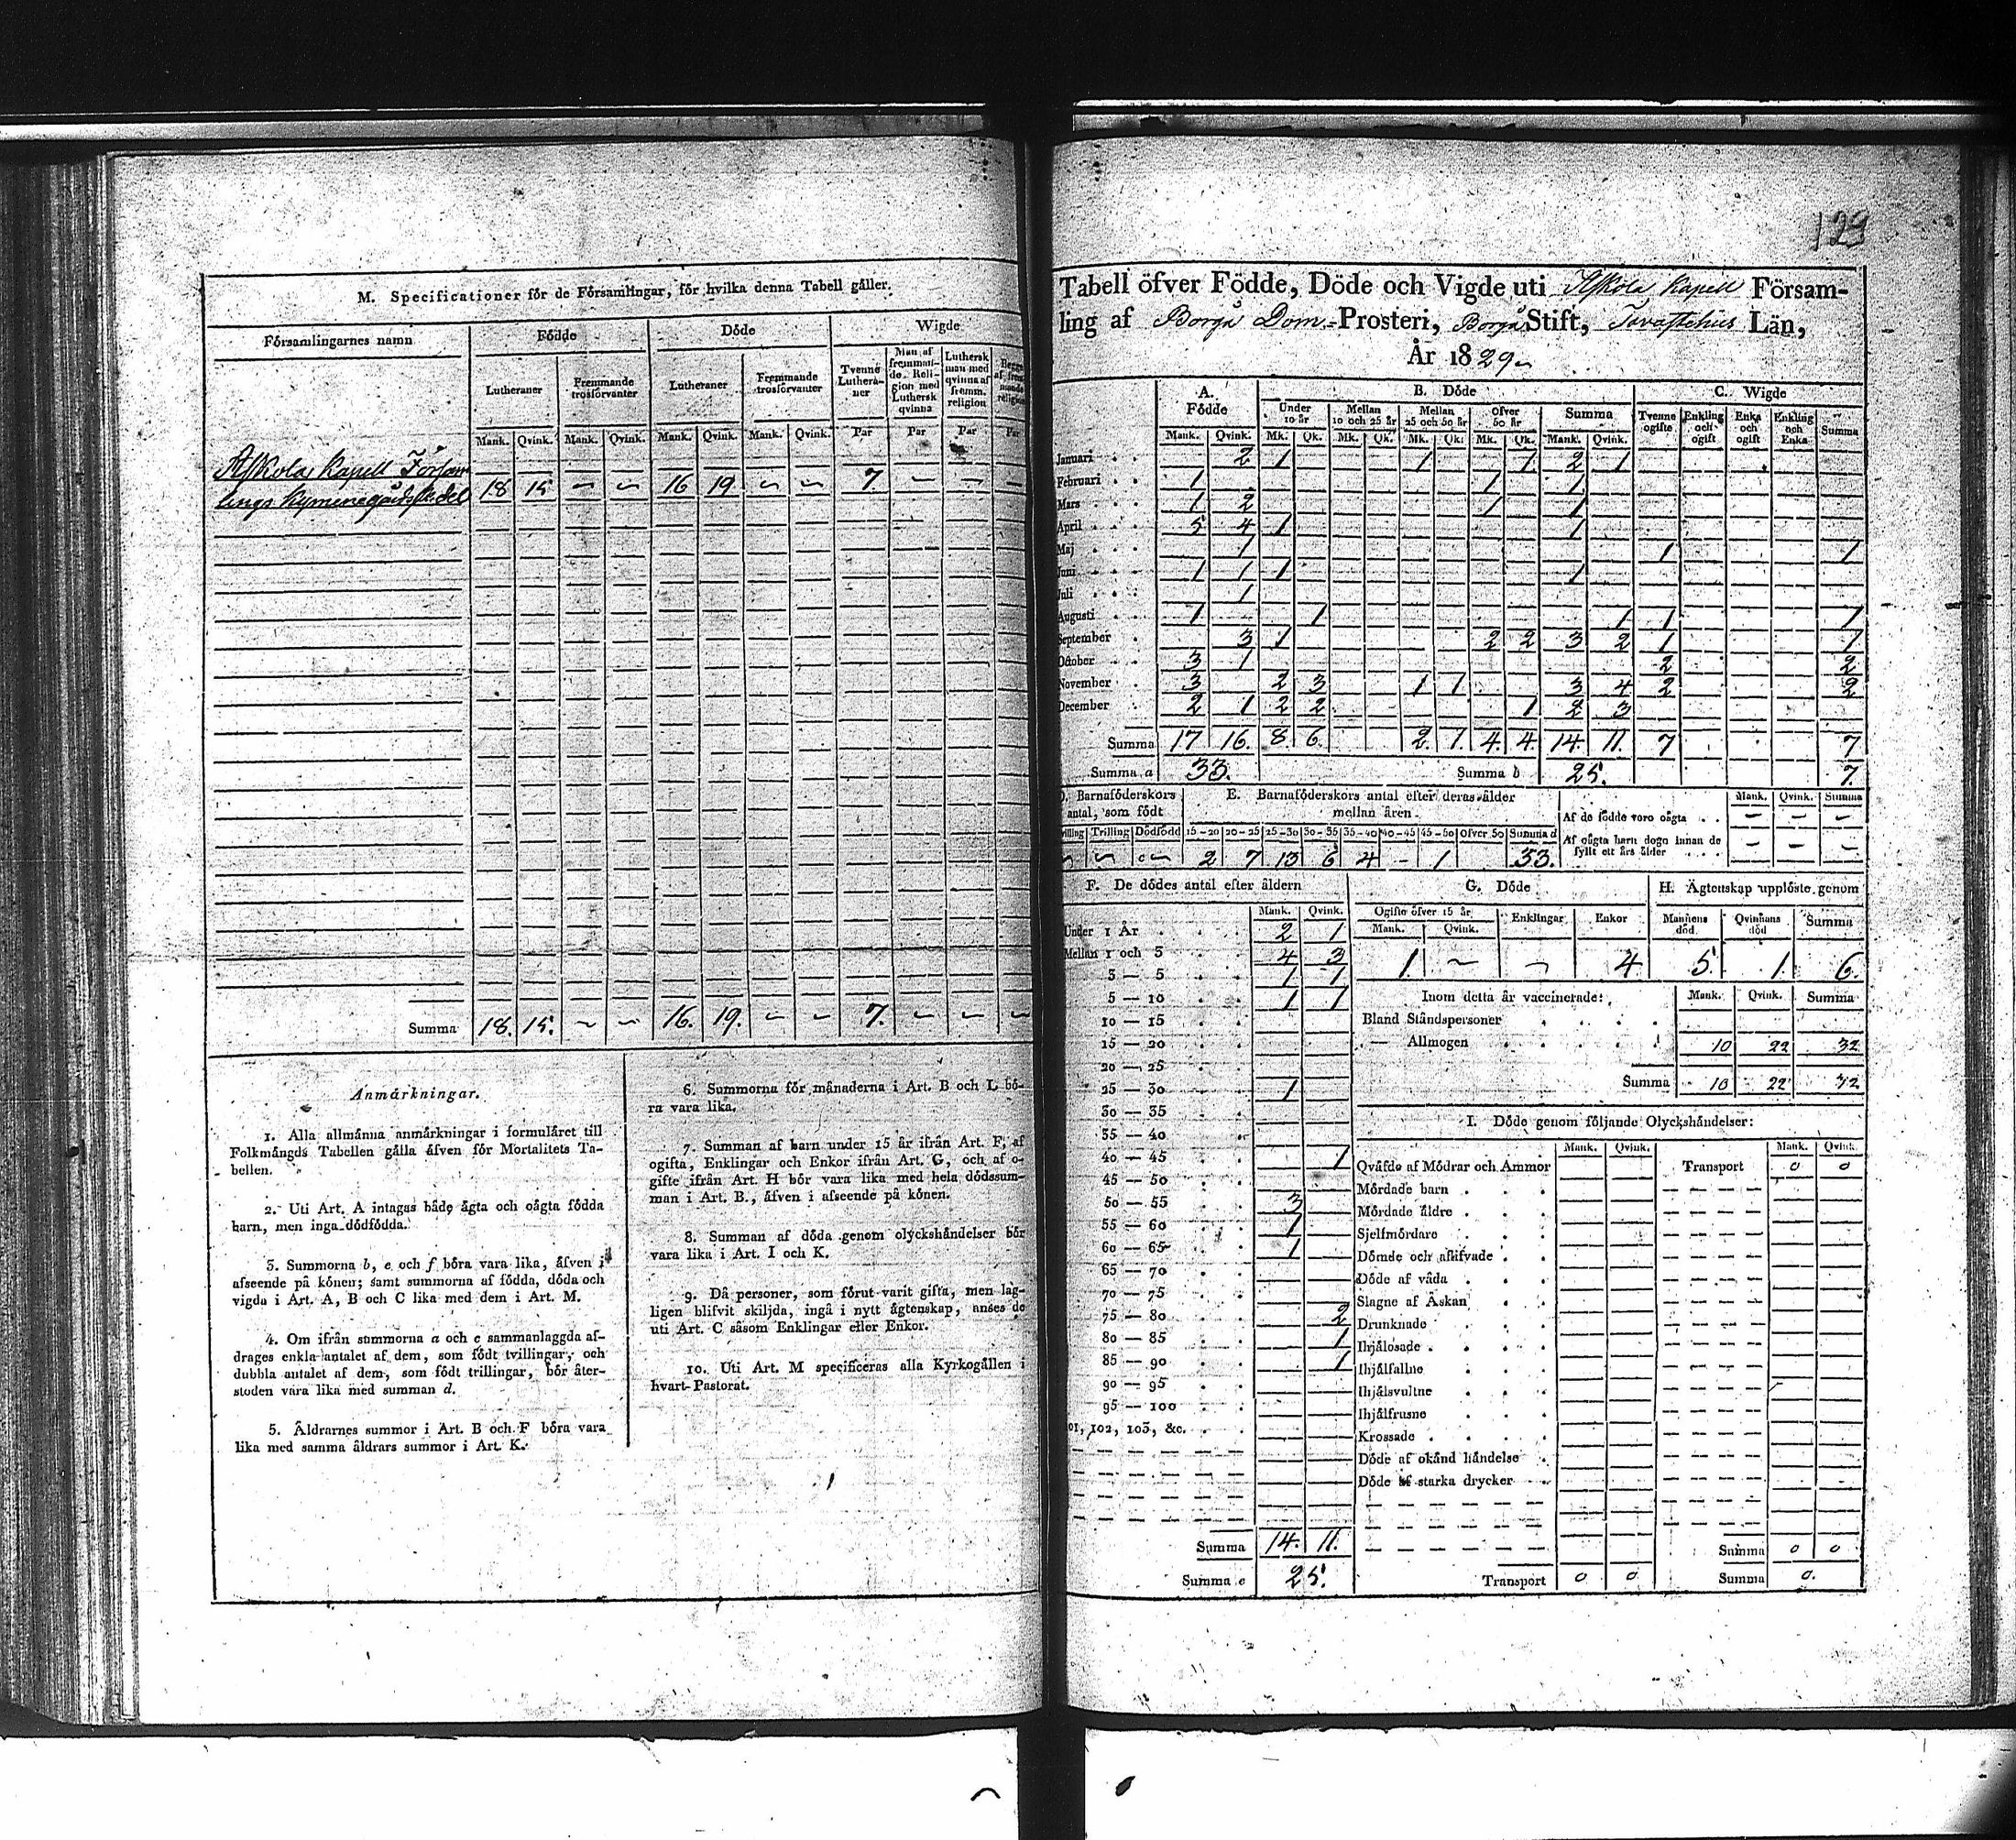 M. Specificationer för de Församlingar, för hvilka denna Tabell gäller.
Församlingarnes namn Födde Döde Wigde
Lutheraner Fremmande trosförvanter Lutheraner Fremmande trosförvanter Tvenne Lutheraner Man af fremmande Religion med Luthersk qvinna Luthersk man med qvinna af fremm. religion
Mank. Qvink. Mank. Qvink. Mank. Qvink. Mank. Qvink. Par Par Par Par
Askola Kapell Försam
lings Kymmenegårds del 18 15 — — 16 19 — — 7. — — —
Summa 18. 15. — — 16. 19. — — 7. — — —
Anmärkningar.
1. Alla allmänna anmärkningar i formuläret till
Folkmängds Tabellen gälla äfven för Mortalitets Ta-
bellen.
2. Uti Art. A intagas både ägta och oägta födda
barn, men inga dödfödda.
3. Summorna b, e och f böra vara lika, äfven i
afseende på könen; samt summorna af födda, döda och
vigda i Art. A, B och C lika med dem i Art. M.
4. Om ifrån summorna a och c sammanlaggda af-
drages enkla antalet af dem, som födt tvillingar, och
dubbla antalet af dem, som födt trillingar, bör åter-
stoden vara lika med summan d.
5. Åldrarnes summor i Art. B och F böra vara
lika med samma åldrars summor i Art. K.
6. Summorna för månaderna i Art. B och L bö-
ra vara lika.
7. Summan af barn under 15 år ifrån Art. F, af
ogifta, Enklingar och Enkor ifrån Art. G, och af o-
gifte ifrån Art. H bör vara lika med hela dödssum-
man i Art. B., äfven i afseende på könen.
8. Summan af döda genom olyckshändelser bör
vara lika i Art. I och K.
9. Då personer, som förut varit gifta, men lag-
ligen blifvit skiljda, ingå i nytt ägtenskap, anses de
uti Art. C såsom Enklingar eller Enkor.
10. Uti Art. M specificeras alla Kyrkogällen i
hvart Pastorat.
129
Tabell öfver Födde, Döde och Vigde uti Askola Kapell Försam-
ling af Borgå Dom-Prosteri, Borgå Stift, Tavastehus Län,
År 1829
A. Födde B. Döde C. Wigde
Under 10 år Mellan 10 och 25 år Mellan 25 och 50 år Öfver 50 år Summa Tvenne ogifte Enkling och ogift Enka och ogift Enkling och Enka Summa
Mank. Qvink. Mk. Qk. Mk. Qk. Mk. Qk. Mk. Qk. Mank. Qvink.
Januari 2 1 1 1 2 1
Februari 1 1 1
Mars 1 2 1 1
April 5 4 1 1
Maj 1 1 1
Juni 1 1 1 1
Juli 1
Augusti 1 1 1 1 1
September 3 1 2 2 3 2 1 1
October 3 1 2 2
November 3 2 3 1 1 3 4 2 2
December 2 1 2 2 1 2 3
Summa 17 16. 8. 6. 2. 1. 4. 4. 14. 11. 7 7
Summa a 33. Summa b 25. 7.
D. Barnaföderskors antal, som födt
Tvilling Trilling Dödfödd
— — —
E. Barnaföderskors antal efter deras ålder mellan åren.
15-20 20-25 25-30 30-35 35-40 40-45 45-50 Öfver 50 Summa d
2 7 13 6 4 - 1 33.
Mank. Qvink. Summa
Af de födde voro oägta — — —
Af oägta barn dogo innan de fyllt ett års ålder — — —
F. De dödes antal efter åldern
Mank. Qvink.
Under 1 År 2 1
Mellan 1 och 3 4 3
3 — 5 1 1
5 — 10 1 1
10 — 15
15 — 20
20 — 25
25 — 30 1
30 — 35
35 — 40
40 — 45 1
45 — 50
50 — 55 3
55 — 60 1
60 — 65 1
65 — 70
70 — 75
75 — 80 2
80 — 85 1
85 — 90 1
90 — 95
95 — 100
101, 102, 103, &c.
Summa 14. 11.
Summa e 25.
G. Döde
Ogifte öfver 15 år Enklingar Enkor
Mank. Qvink.
1 — — 4
H. Ägtenskap upplöste genom
Mannens död Qvinnans död Summa
5. 1. 6.
Inom detta år vaccinerade: Mank. Qvink. Summa
Bland Ståndspersoner
— Allmogen 10 22 32
Summa 10 22 32
I. Döde genom följande Olyckshändelser:
Mank. Qvink. Mank. Qvink.
Qväfde af Mödrar och Ammor Transport 0 0
Mördade barn
Mördade äldre
Sjelfmördare
Dömde och aflifvade
Döde af våda
Slagne af Åskan
Drunknade
Ihjälosade
Ihjälfallne
Ihjälsvultne
Ihjälfrusne
Krossade
Döde af okänd händelse
Döde af starka drycker
Summa 0 0
Transport 0 0 Summa 0.